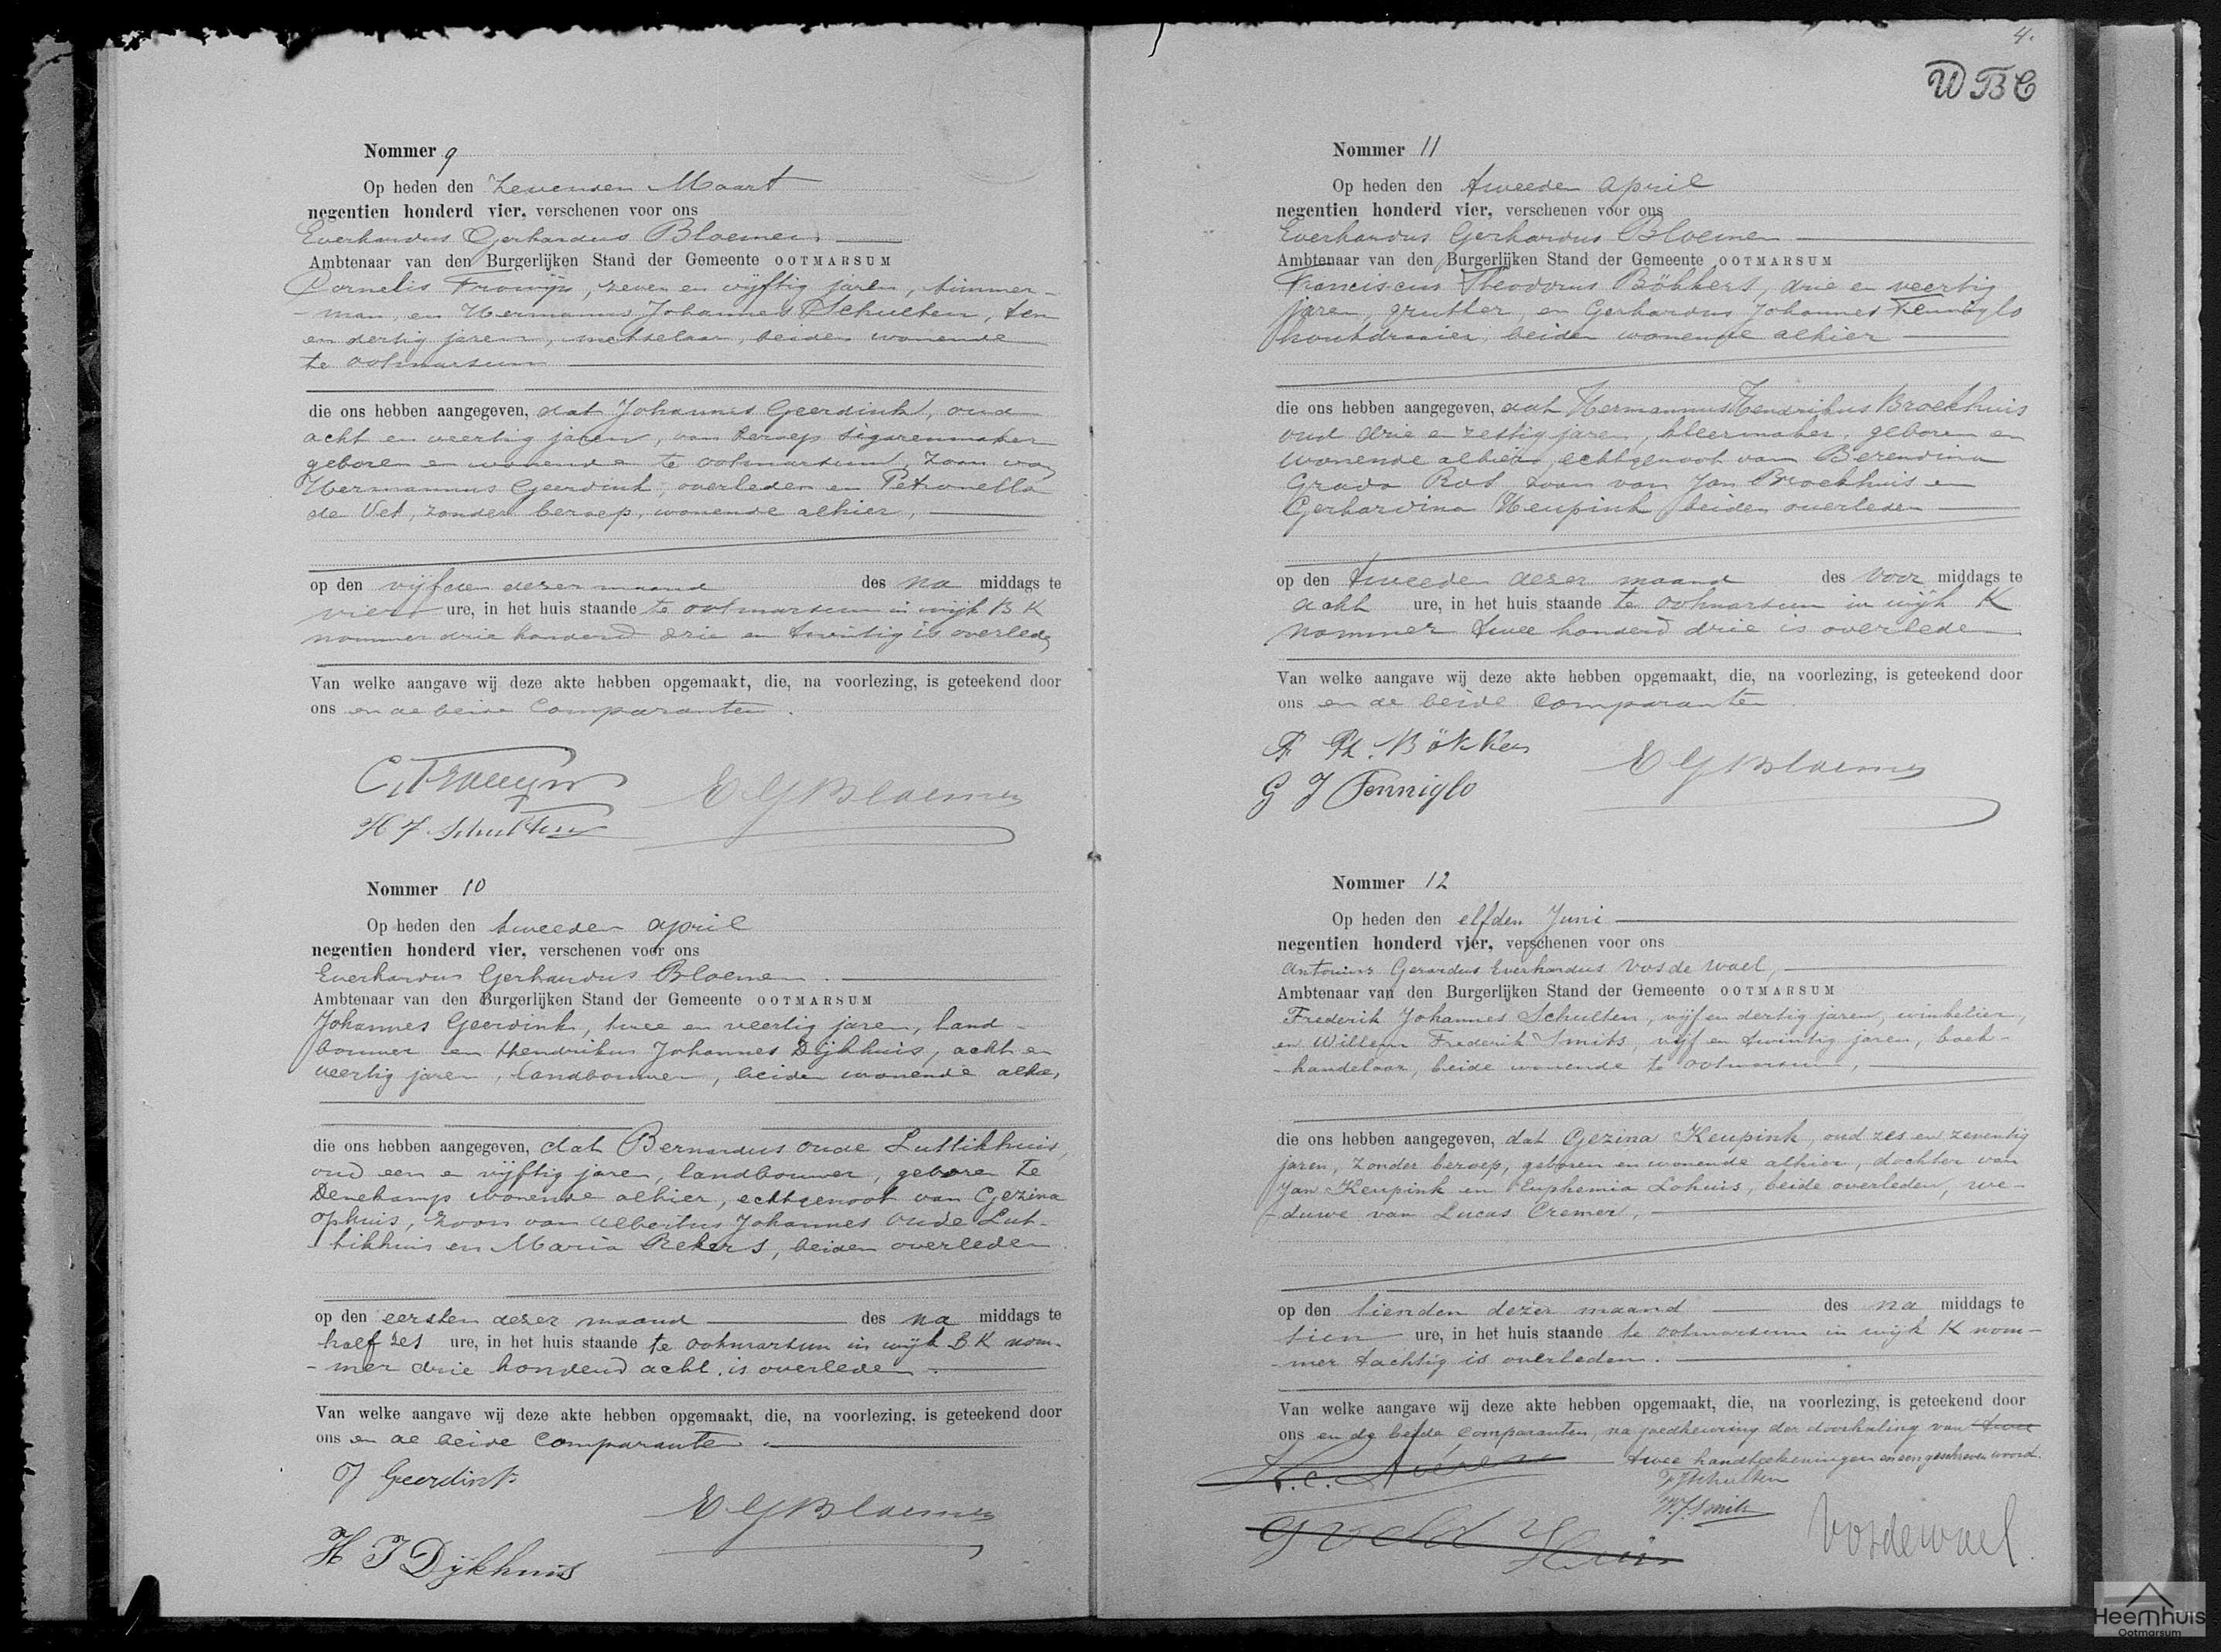 Nommer 9
Op heden den zevenden Maart
negentien honderd vier, verschenen voor ons
Everhardus Gerhardus Bloemen
Ambtenaar van den Burgerlijken Stand der Gemeente OOTMARSUM
Cornelis Frowijn, zeven en vijftig jaren, timmer-
-man, en Hermannus Johannes Schulten, 
en dertig jaren, metselaar, beiden wonende
te Ootmarsum
die ons hebben aangegeven, dat Johannes Geerdink, oud
acht en veertig jaren, van beroep sigarenmaker
geboren en wonende te Ootmarsum, zoon van
Hermannus Geerdink, overleden en Petronella
de Vet, zonder beroep, wonende alhier,
op den vijfden dezer maand des na middags te
vier ure, in het huis staande te Ootmarsum in wijk B K
nommer drie honderd drie en twintig is overleden
Van welke aangave wij deze akte hebben opgemaakt, die, na voorlezing, is geteekend door
ons en de beide Comparanten.
C. Frowijn
H J Schulten
E G Bloemen
Nommer 10
Op heden den tweeden april
negentien honderd vier, verschenen voor ons
Everhardus Gerhardus Bloemen
Ambtenaar van den Burgerlijken Stand der Gemeente OOTMARSUM
Johannes Geerdink, twee en veertig jaren, land-
bouwer en Hendrikus Johannes Dijkhuis, acht en
veertig jaren, landbouwer, beiden wonende alhier,
die ons hebben aangegeven, dat Bernardus oude Luttikhuis,
oud een en vijftig jaren, landbouwer, geboren te
Denekamp wonende alhier, echtgenoot van Gezina
Ophuis, zoon van Albertus Johannes Oude Lut-
tikhuis en Maria Rekers, beiden overleden
op den eersten dezer maand des na middags te
half zes ure, in het huis staande te Ootmarsum in wijk B K nom-
-mer drie honderd acht, is overleden.
Van welke aangave wij deze akte hebben opgemaakt, die, na voorlezing, is geteekend door
ons en de beide Comparanten.
J Geerdink
E G Bloemen
H J Dijkhuis
4.
WBC
Nommer 11
Op heden den tweeden april
negentien honderd vier, verschenen voor ons
Everhardus Gerhardus Bloemen
Ambtenaar van den Burgerlijken Stand der Gemeente OOTMARSUM
Franciscus Theodorus Bökkers, drie en veertig
jaren, grutter, en Gerhardus Johannes Fenniglo
houtdraaier, beiden wonende alhier
die ons hebben aangegeven, dat Hermannus Hendrikus Broekhuis
oud drie en zestig jaren, kleermaker, geboren en
wonende alhier, echtgenoot van Berendina
Grada Ros zoon van Jan Broekhuis en
Gerhardina Heupink beiden overleden
op den tweeden dezer maand des voor middags te
acht ure, in het huis staande te Ootmarsum in wijk K
nommer twee honderd drie is overleden
Van welke aangave wij deze akte hebben opgemaakt, die, na voorlezing, is geteekend door
ons en de beide Comparanten
F Th. Bökkers
E G Bloemen
G J Fenniglo
Nommer 12
Op heden den elfden Juni
negentien honderd vier, verschenen voor ons
Antonius Gerardus Everhardus Vos de Wael,
Ambtenaar van den Burgerlijken Stand der Gemeente OOTMARSUM
Frederik Johannes Schulten, vijf en dertig jaren, winkelier,
en Willem Frederik Smits, vijf en twintig jaren, boek-
-handelaar, beide wonende te Ootmarsum,
die ons hebben aangegeven, dat Gezina Keupink, oud zes en zeventig
jaren, zonder beroep, geboren en wonende alhier, dochter van
Jan Keupink en Euphemia Lohuis, beide overleden, we-
-duwe van Lucas Cremer,
op den tienden dezer maand des na middags te
tien ure, in het huis staande te Ootmarsum in wijk K nom-
-mer tachtig is overleden.
Van welke aangave wij deze akte hebben opgemaakt, die, na voorlezing, is geteekend door
ons en de beide Comparanten, na goedkeuring der doorhaling van twee
twee handteekeningen en een geschreven woord.
FJSchulten
W.F. Smits
Vosdewael
Heemhuis
Ootmarsum